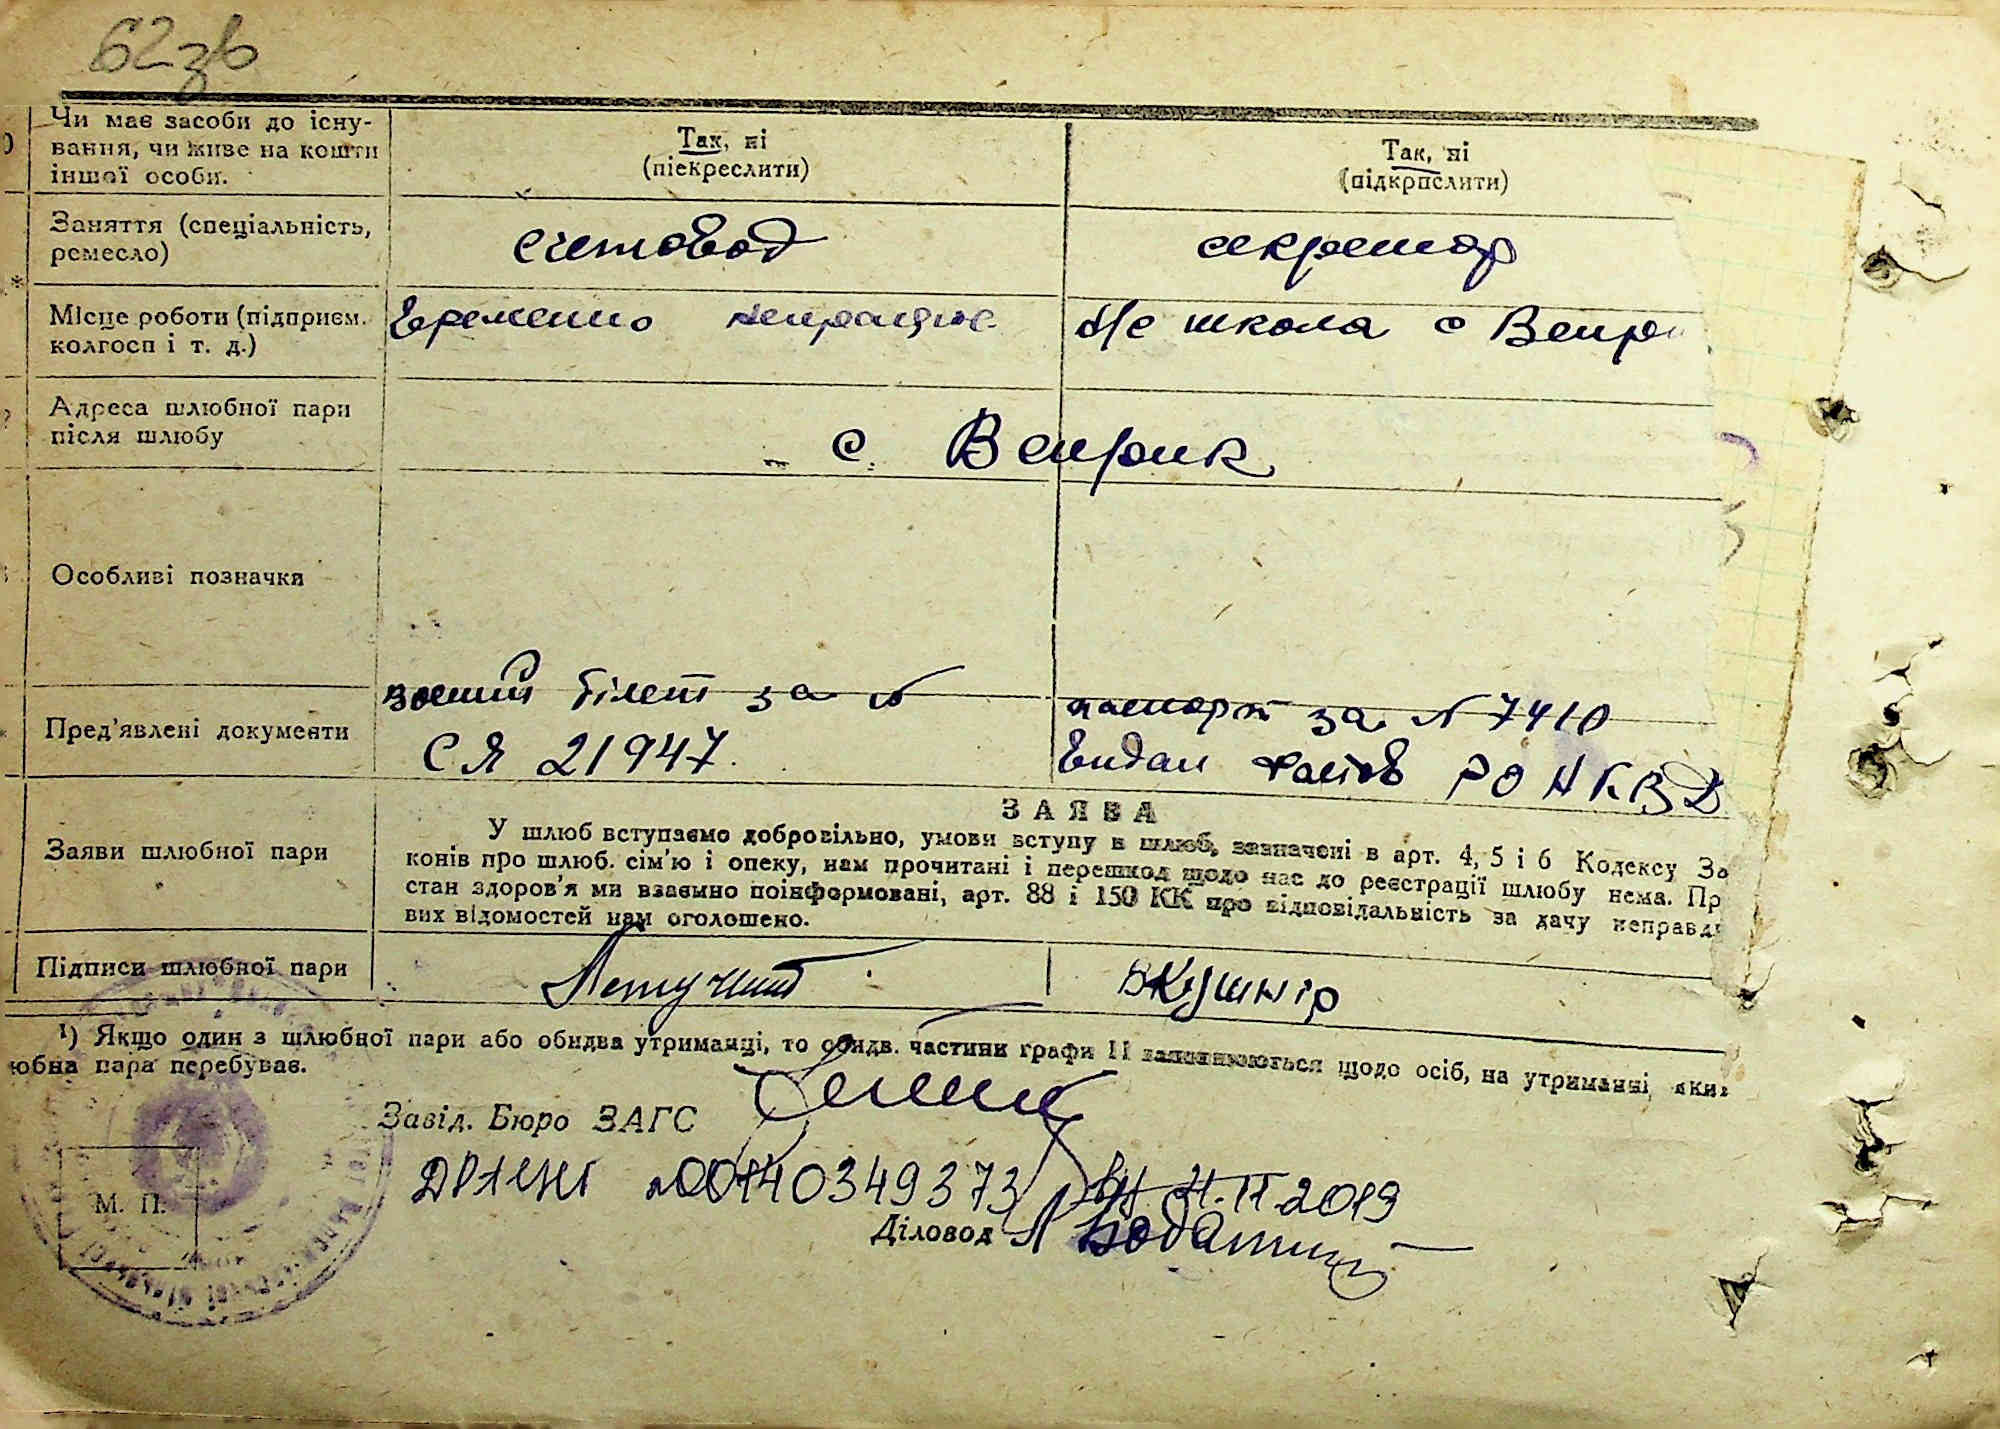 62зв
Чи має засоби до існу-
вання, чи живе на кошти
іншої особи.
Так, ні
(піекреслити)
Так, ні
(підкрпслити)
Заняття (спеціальність,
ремесло)
счетовод
секретар
Місце роботи (підприєм.
колгосп і т. д.)
Временно непрацює
Н/с школа с Вепри
Адреса шлюбної пари
після шлюбу
с. Веприк
Особливі позначки
Пред'явлені документи
воєний білет за №
СЯ 21947.
паспорт за № 7410
Видан Фастів РО НКВД
Заяви шлюбної пари
ЗАЯВА
У шлюб вступаємо добровільно, умови вступу в шлюб, зазначені в арт. 4, 5 і 6 Кодексу За
конів про шлюб. сім'ю і опеку, нам прочитані і перешкод щодо нас до реєстрації шлюбу нема. Пр
стан здоров'я ми взаємно поінформовані, арт. 88 і 150 КК про відповідальність за дачу неправд
вих відомостей нам оголошено.
Підписи шлюбної пари
ВКушнір
¹) Якщо один з шлюбної пари або обидва утриманці, то обидв. частини графи 11 заповнюються щодо осіб, на утриманні яки
юбна пара перебуває.
Завід. Бюро ЗАГС
ДРАЦНГ №00140349373 від 21.II.2019
М. П.
Діловод